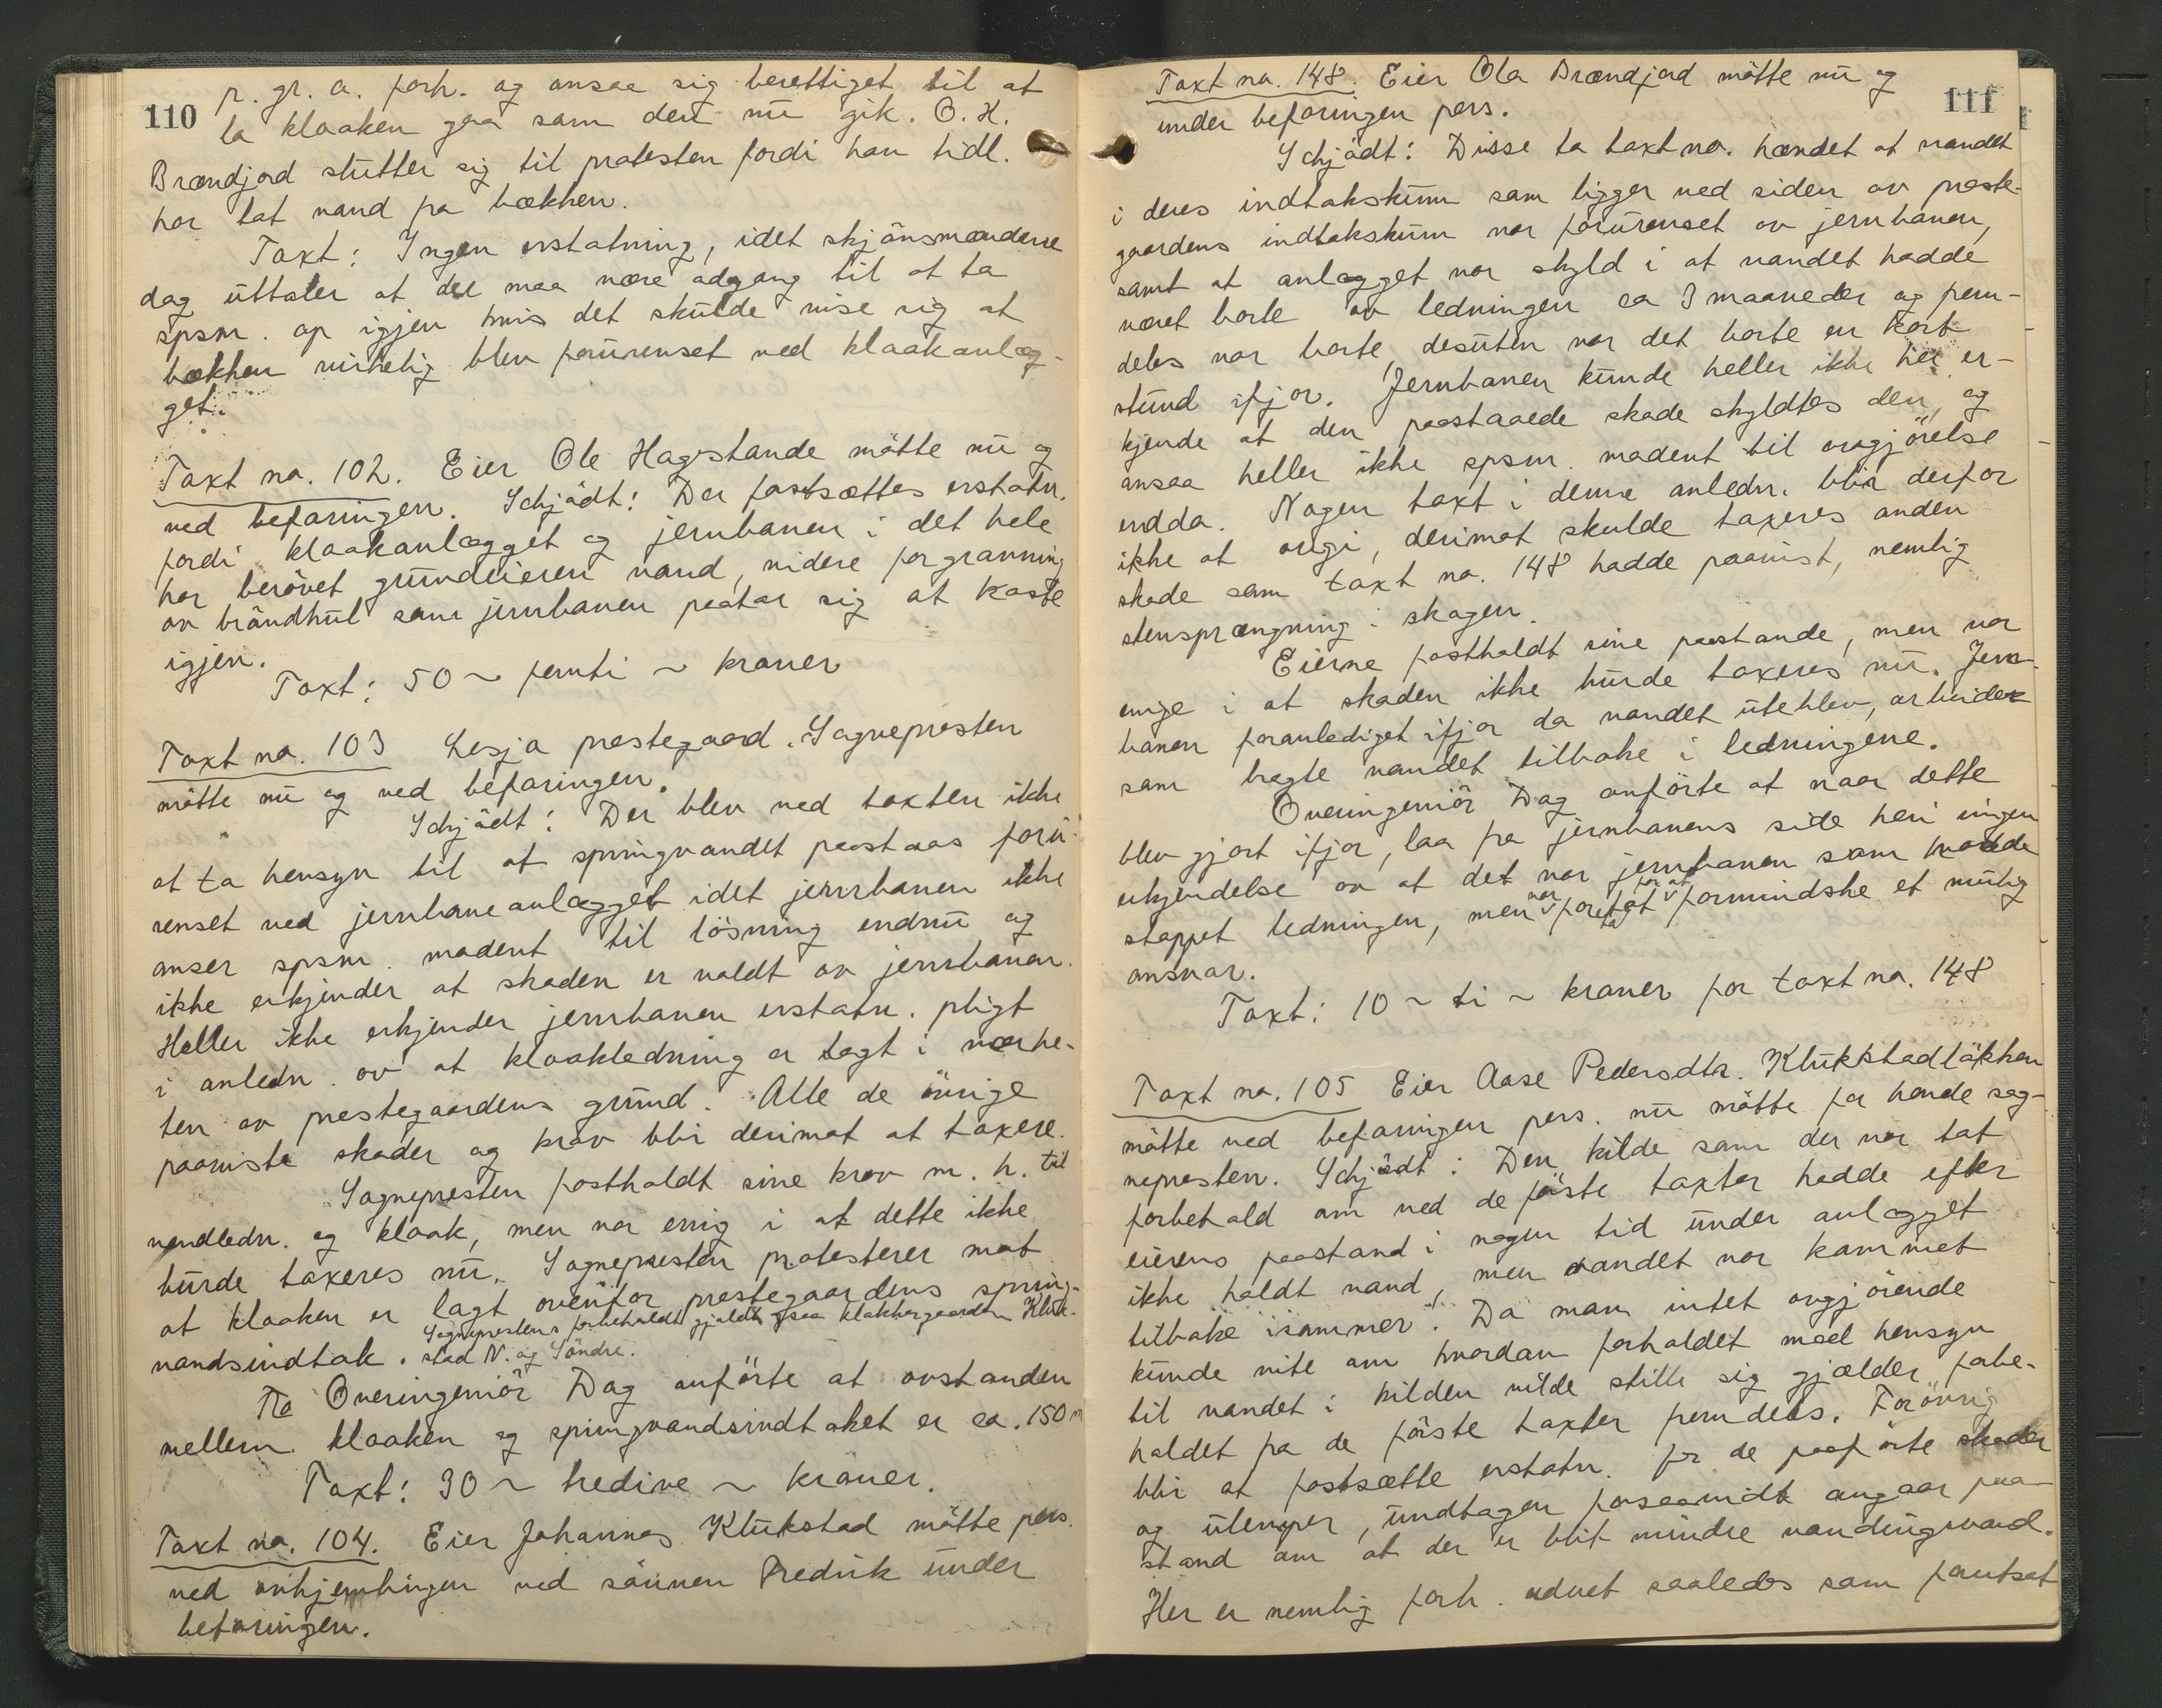 110
p. gr. a. forh. og ansaa sig berettiget til at
la kloaken gaa som den nu gik. O. H.
Brændjord støtter sig til protesten fordi han tidl.
har tat vand fra bækken.
Taxt: Ingen erstatning, idet skjønsmændene
dog uttaler at der maa være adgang til at ta
spsm. op igjen hvis det skulde vise sig at
bækken virkelig blev forurenset ved kloakanlæg-
get.
Taxt no. 102. Eier Ole Hagestande møtte nu og
ved befaringen. Schjødt: Der fastsættes erstatn.
fordi kloakanlægget og jernbanen i det hele
har berøvet grundeieren vand, videre for gravning
av brøndhul som jernbanen paatar sig at kaste
igjen.
Taxt: 50 ~ femti ~ kroner
Taxt no. 103 Lesja prestegaard. Sognepresten
møtte nu og ved befaringen.
Schjødt: Der blev ved taxten ikke
at ta hensyn til at springvandet paastaas foru-
renset ved jernbaneanlægget idet jernbanen ikke
anser spsm. modent til løsning endnu og
ikke erkjender at skaden er voldt av jernbanen.
Heller ikke erkjender jernbanen erstatn. pligt
i anledn. av at kloakledning er lagt i nærhe-
ten av prestegaardens grund. Alle de øvrige
paaviste skader og krav blir derimot at taxere.
Sognepresten fastholdt sine krav m. h. til
vandledn. og kloak, men var enig i at dette ikke
burde taxeres nu. Sognepresten protesterer mot
at kloaken er lagt ovenfor prestegaardens spring-
vandsindtak. Sogneprestens forbehold gjaldt ogsaa klokkergaarden Kluk-
stad N. og Søndre.
Overingeniør Dag anførte at avstanden
mellem kloaken og springvandsindtaket er ca. 150 m
Taxt: 30 ~ tredive ~ kroner.
Taxt no. 104. Eier Johannes Klukstad møtte pers.
ved avhjemlingen ved sønnen Fredrik under
befaringen.
111
Taxt no. 148. Eier Ola Brændjord møtte nu og
under befaringen pers.
Schjødt: Disse to taxt no. hændet at vandet
i deres indtakskum som ligger ved siden av preste-
gaardens indtakskum var forurenset av jernbanen,
samt at anlægget var skyld i at vandet hadde
været borte av ledningen ca 3 maaneder og frem-
deles var borte, desuten var det borte en kort
stund ifjor. Jernbanen kunde heller ikke her er-
kjende at den paastaaede skade skyldtes den, og
ansaa heller ikke spsm. modent til avgjørelse
endda. Nogen taxt i denne anledn. blir derfor
ikke at avgi, derimot skulde taxeres anden
skade som taxt no. 148 hadde paavist, nemlig
stensprængning i skogen.
Eierne fastholdt sine paastande, men var
enige i at skaden ikke burde taxeres nu. Jern-
banen foranlediget ifjor da vandet uteblev, arbeider
som bragte vandet tilbake i ledningene.
Overingeniør Dag anførte at naar dette
blev gjort ifjor, laa fra jernbanens side heri ingen
erkjendelse av at det var jernbanen som hadde
stoppet ledningen, men var foretat for at formindske et mulig
ansvar.
Taxt: 10 ~ ti ~ kroner for taxt no. 148
Taxt no. 105 Eier Aase Pedersdtr. Klukstadløkken
møtte ved befaringen pers. nu møtte for hende sog-
nepresten. Schjødt: Den kilde som der var tat
forbehold om ved de første taxter hadde efter
eierens paastand i nogen tid under anlægget
ikke holdt vand, men vandet var kommet
tilbake isommer. Da man intet avgjørende
kunde vite om hvordan forholdet med hensyn
til vandet i kilden vilde stille sig gjælder forbe-
holdet fra de første taxter fremdeles. Forøvrig
blir at fastsætte erstatn. for de paaførte skader
og ulemper, undtagen forsaavidt angaar paa-
stand om at der er blit mindre vandingsvand.
Her er nemlig forh. ordnet saaledes som forutsat